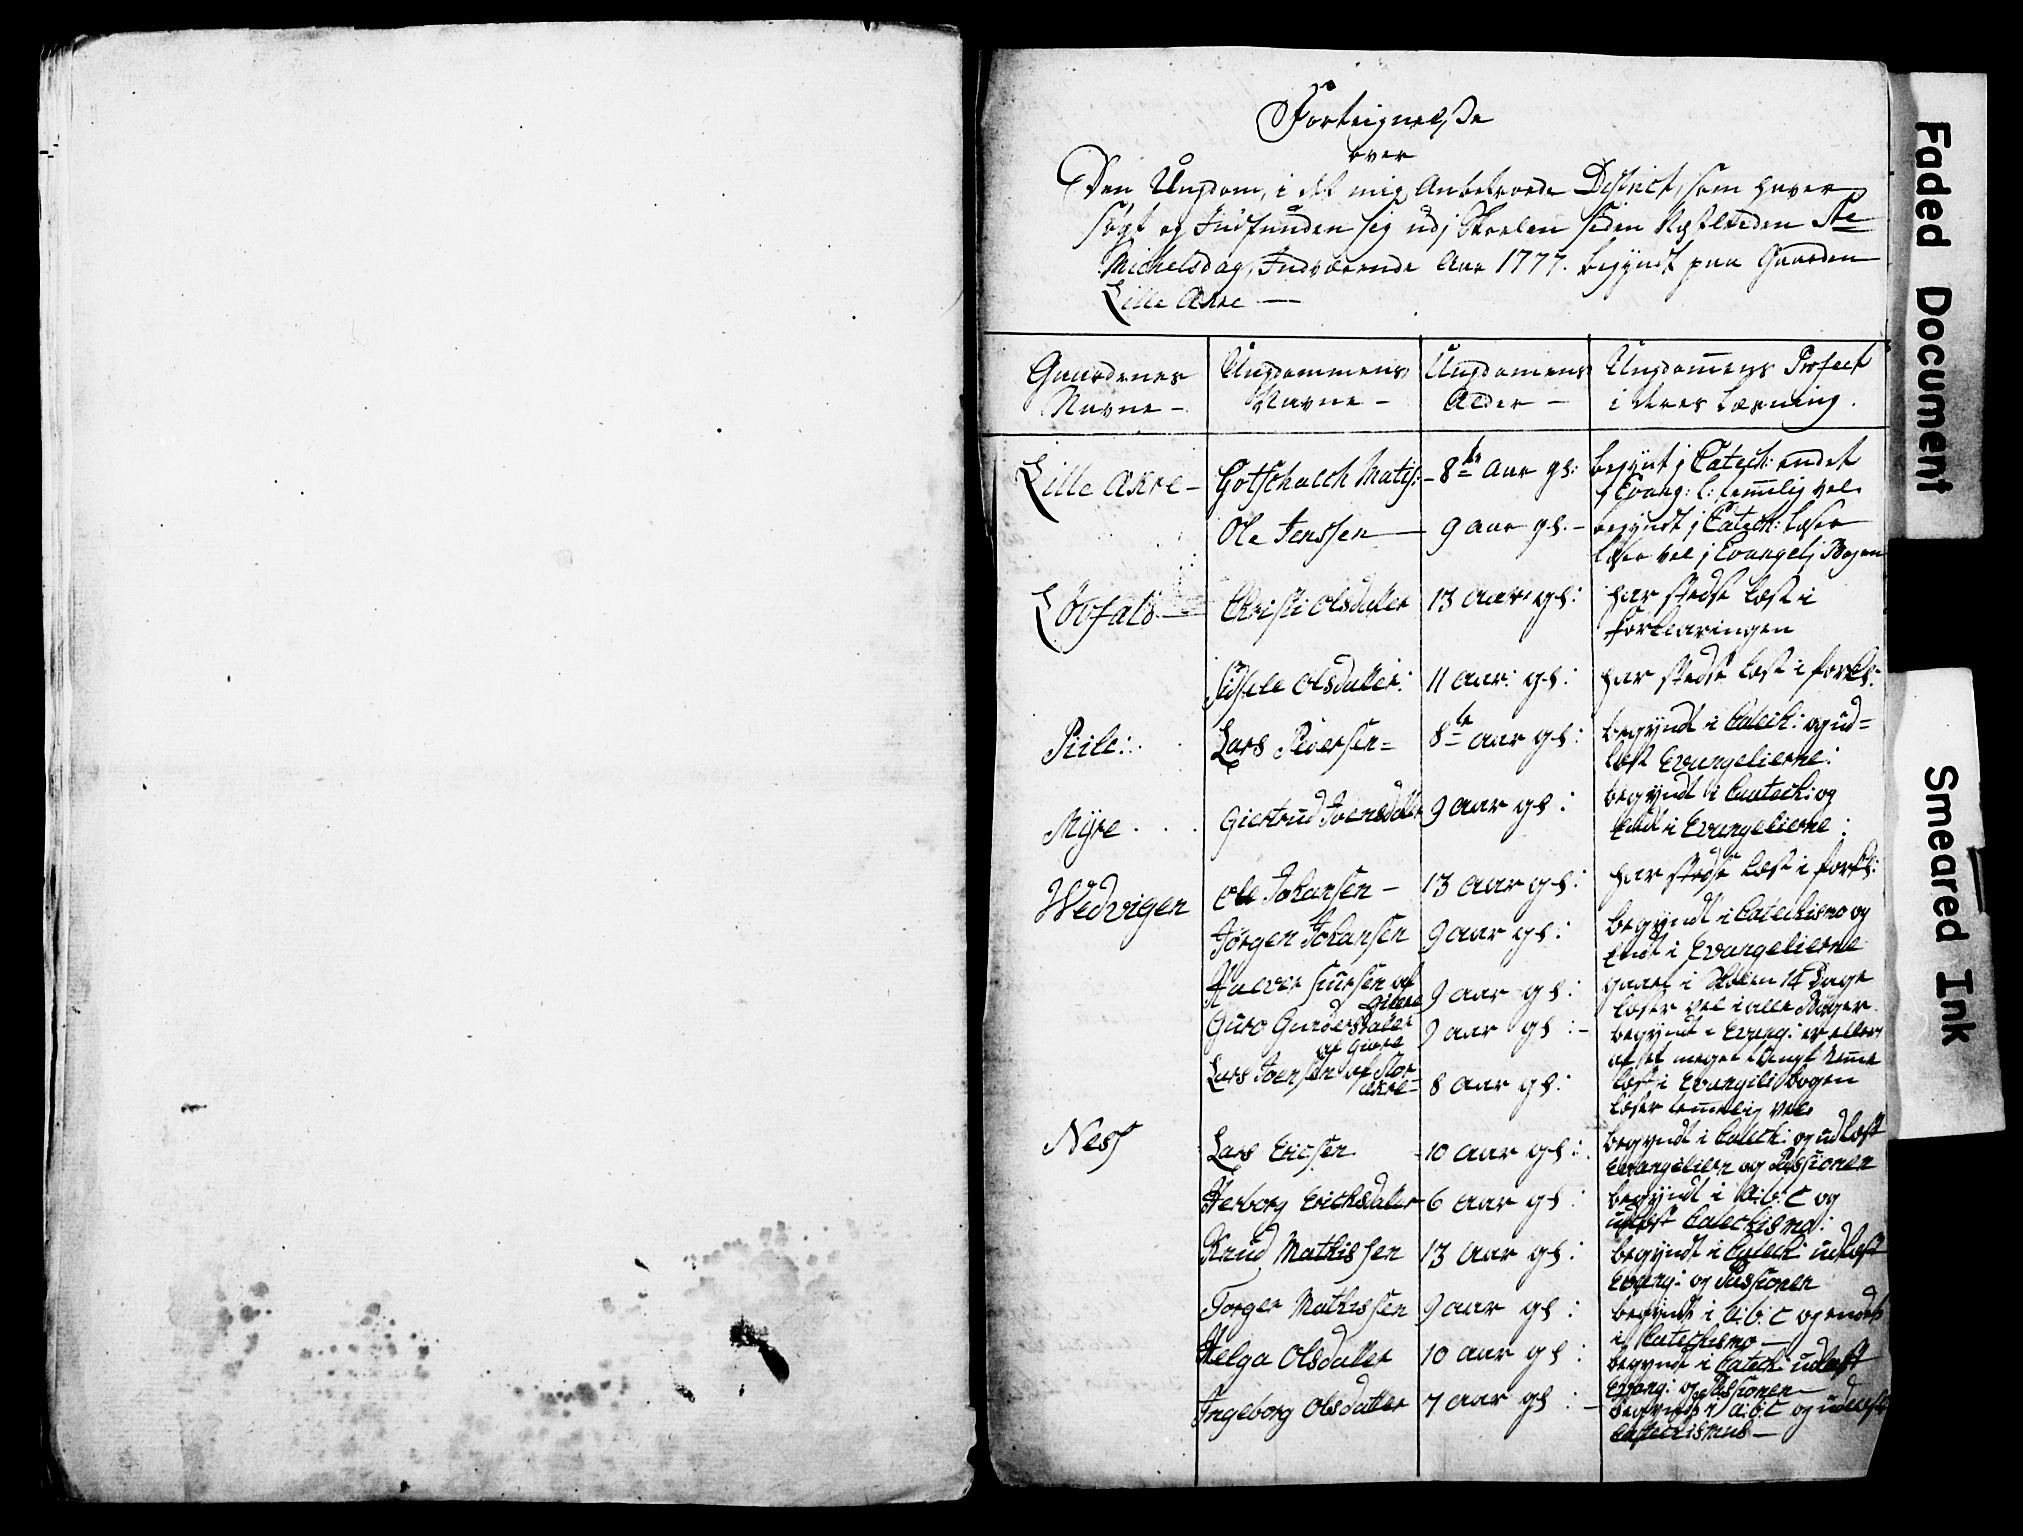 Forteignelse
over
Den Ungdom, i det mig Anbetroede District, som haver
søgt og Indfunden sig udj Skoelen siden Næstleeden Ste
Michelsdag, Indværende Aar 1777. begyndt paa Gaarden
Lille Akre
Gaardenes
Navne -
Ungdommens
Navne -
Ungdomens
Alder -
Ungdomens Profect
i deres Læsning.
Lille Akre - Gotschalch Matis: - 8te Aar gl: begynt j Catech: endet
j Evang: l: temelig vel
Ole Jenssen 9 aar gl. - begyndt j Catech: læser
læser vel j Evangelj Bogen
Løvfald Christi Olsdatter 13 aar gl: har stedse læst i
forklaringen
Sidsele Olsdatter: 11 aar: gl: har stedse læst i forkl:
Piile: Lars Pedersen 8te aar gl: begyndt i Catech: og ud=
læst Evangelierne:
Myre Giertrud Joensdatter 9 aar gl: begyndt i Catech: og
endt i Evangelierne:
Wedvigen Ole Johansen - 13 aar gl: har stedse læst i forkl:
Jørgen Johansen 9 aar gl: begyndt i Catechismo og
endt i Evangelierne
Halvor Siursen af 9 aar gl: gaaet i Skolen 14 Dage
læser vel i alle Bøger
Guro Gundersdatter 9 aar gl: - begyndt i Evang: er ellers
af
af et meget tungt Neme
Lars Joensen af Stor
Akre 8 aar gl: læst i Evangeli bogen
læser temelig vel
Ness Lars Ericsen 10 aar gl: begyndt i Catech: og udlæst
Evangelien og Passionen
Herborg Erichsdatter 6 aar gl: begyndt i A:b:C og
udlæst Catechismo:
Knud Mathissen 13 aar gl: begyndt i Catech: udlæst
Evang: og Passionen
Torger Mathissen 9 aar gl: begyndt i A:b:C og endet
i Catechismo -
Helga Olsdatter 10 aar gl: begyndt i Catech: udlæst
Evang: og Passionen
Ingeborg Olsdatter 7 aar gl: - begyndt i A:b:C og udlæst
Catechismus -
Faded Document
Smeared Ink